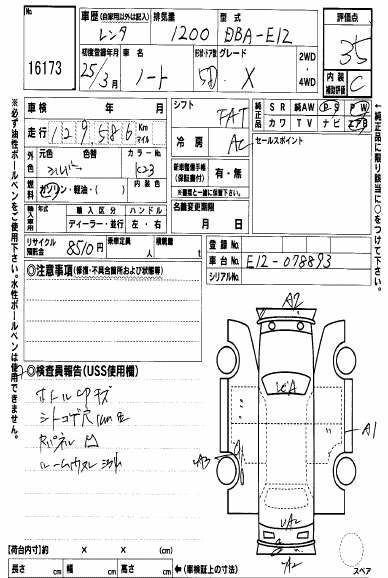 No.
16173
車歴 (自家用以外は記入)
レンタ
排気量
1200
型式
DBA-E12
評価点
3.5
初度登録年月
25年
3月
車名
ノート
形状・ドア数
5D
グレード
X
2WD
・
4WD
内装
補助評価
C
車検 年 月
シフト
FAT
純正品
SR 純AW PS PW
カワ TV ナビ エアB
走行 129,586 Km
マイル
冷房
AC
セールスポイント
外色
元色
色替
カラーNo.
K23
シルバー
燃料
ガソリン・軽油・( )
内装色
新車整備手帳
(保証書付)
有・無
※書類と一緒に保管下さい。
輸入車用
年式
輸入区分
ハンドル
ディーラー・並行
左・右
名義変更期限
月 日
リサイクル
預託金
8510円
乗車定員
人
積載量
t
登録No.
車台No.
E12-078893
シリアルNo.
◎注意事項 (修復・不具合箇所および状態等)
◎検査員報告 (USS使用欄)
シートコゲ穴
A2
A1
UA3
UA2
A2
【荷台内寸】 × × (cm)
長さ cm 幅 cm 高さ cm
←(車検証上の寸法)
スペア
※必ず油性ボールペンをご使用下さい。水性ボールペンは使用できません。
←純正品に限り該当に○をつけて下さい。